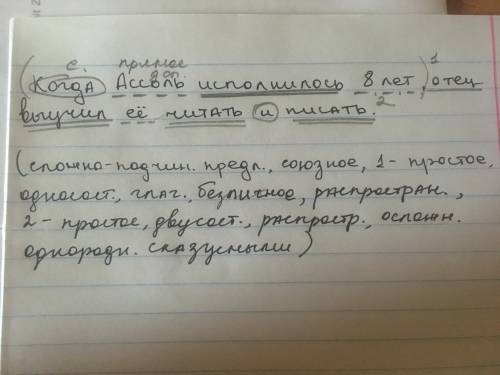 с. прямое
доп.
(Когда Ассоль исполнилось 8 лет,)¹ отец
выучил её читать и писать. 2
(сложно-подчин. предл., союзное, 1 - простое,
односост., глаг., безличное, распростран.,
2 - простое, двусост., распростр., осложн.
однородн. сказуемыми)